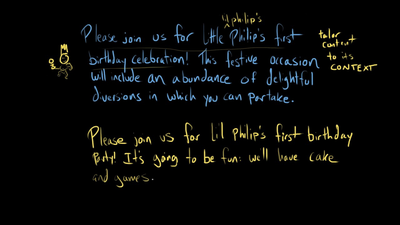 lil philip's
Please join us for little Philip's first
birthday celebration! This festive occasion
will include an abundance of delightful
diversions in which you can partake.
tailor
content
to its
CONTEXT
Please join us for lil philip's first birthday
Party! It's going to be fun: we'll have cake
and games.